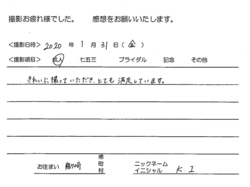 撮影お疲れ様でした。　感想をお願いいたします。
<撮影日時> 2020 年 1 月 31 日 (金)
<撮影項目> 成人 七五三 ブライダル 記念 その他
きれいに撮っていただき、とても満足しています。
お住まい 龍ケ崎 市 町 村 ニックネーム イニシャル K I